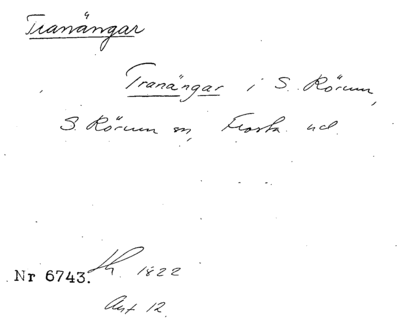 Tranängar
Tranängar i S. Rörum,
S. Rörum sn, Frosta hd
Nr 6743. 1822
Akt 12.